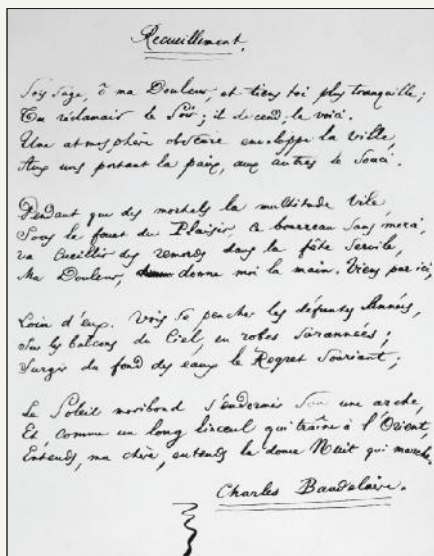 Recueillement.
Sois sage, ô ma Douleur, et tiens toi plus tranquille;
Tu réclamais le Soir; il descend; le voici.
Une atmosphère obscure enveloppe la ville,
Aux uns portant la paix, aux autres le souci.
Pendant que des mortels la multitude vile
Sous le fouet du Plaisir, ce bourreau sans merci,
va cueillir des remords dans la fête servile,
Ma Douleur, donne moi la main. Viens par ici,
Loin d'eux. Vois se pencher les défuntes Années,
Sur les balcons du Ciel, en robes surannées;
Surgir du fond des eaux le Regret souriant;
Le Soleil moribond s'endormir sous une arche,
Et, comme un long linceul qui traîne à l'Orient,
Entends, ma chère, entends la douce Nuit qui marche.
Charles Baudelaire.